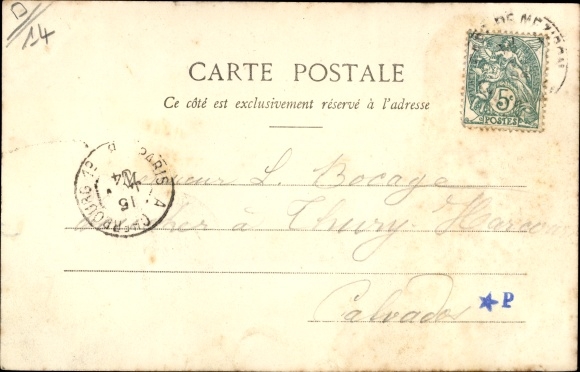 D
14
CARTE POSTALE
Ce côté est exclusivement réservé à l'adresse
DE MEZIE
5c
POSTES
PARIS A CHERBOURG
15
04
Monsieur L. Bocage
à Thury-Harcourt
Calvados
★P